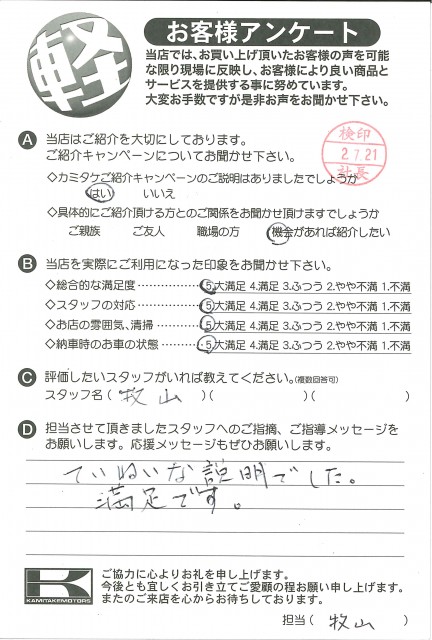 軽
お客様アンケート
当店では、お買い上げ頂いたお客様の声を可能
な限り現場に反映し、お客様により良い商品と
サービスを提供する事に努めています。
大変お手数ですが是非お声をお聞かせ下さい。
検印
2.7.21
社長
A 当店はご紹介を大切にしております。
ご紹介キャンペーンについてお聞かせ下さい。
◇カミタケご紹介キャンペーンのご説明はありましたでしょうか
はい いいえ
◇具体的にご紹介頂ける方とのご関係をお聞かせ頂けますでしょうか
ご親族 ご友人 職場の方 機会があれば紹介したい
B 当店を実際にご利用になった印象をお聞かせ下さい。
◇総合的な満足度……………5.大満足 4.満足 3.ふつう 2.やや不満 1.不満
◇スタッフの対応……………5.大満足 4.満足 3.ふつう 2.やや不満 1.不満
◇お店の雰囲気、清掃………5.大満足 4.満足 3.ふつう 2.やや不満 1.不満
◇納車時のお車の状態………5.大満足 4.満足 3.ふつう 2.やや不満 1.不満
C 評価したいスタッフがいれば教えてください。(複数回答可)
スタッフ名( 牧山 )( )( )
D 担当させて頂きましたスタッフへのご指摘、ご指導メッセージを
お願いします。応援メッセージもぜひお願いします。
ていねいな説明でした。
満足です。
KAMITAKEMOTORS
ご協力に心よりお礼を申し上げます。
今後とも宜しくお引き立てご愛顧の程お願い申し上げます。
またのご来店を心からお待ちしております。
担当( 牧山 )